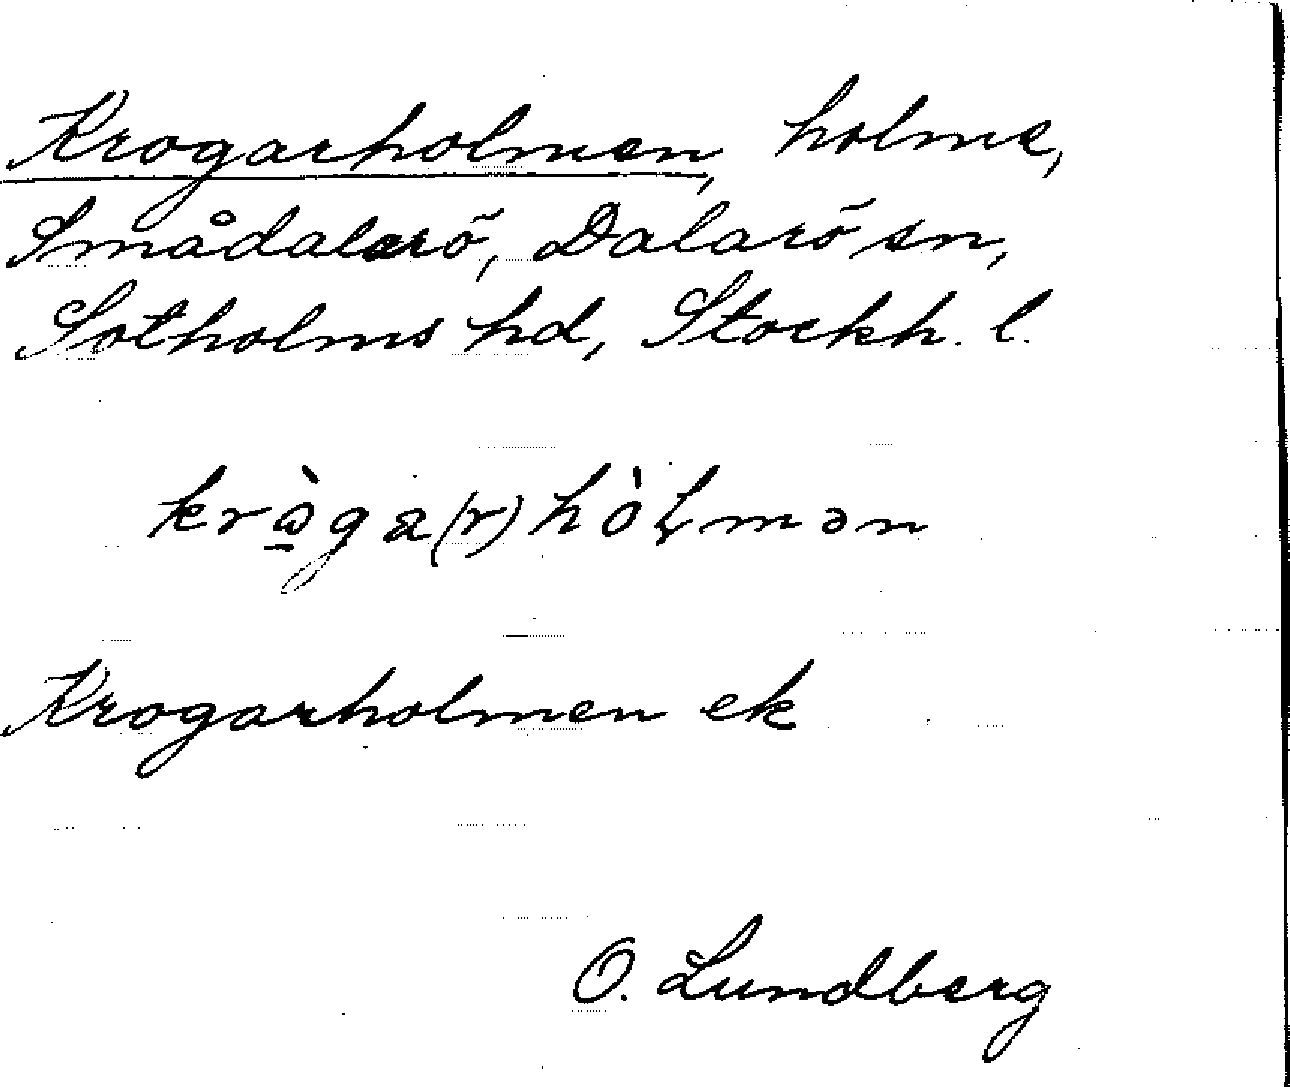 Krogarholmen, holme,
Smådalarö, Dalarö sn,
Sotholms hd, Stockh. l.
krò̱ga(r)hòɫmən
Krogarholmen ek
O. Lundberg